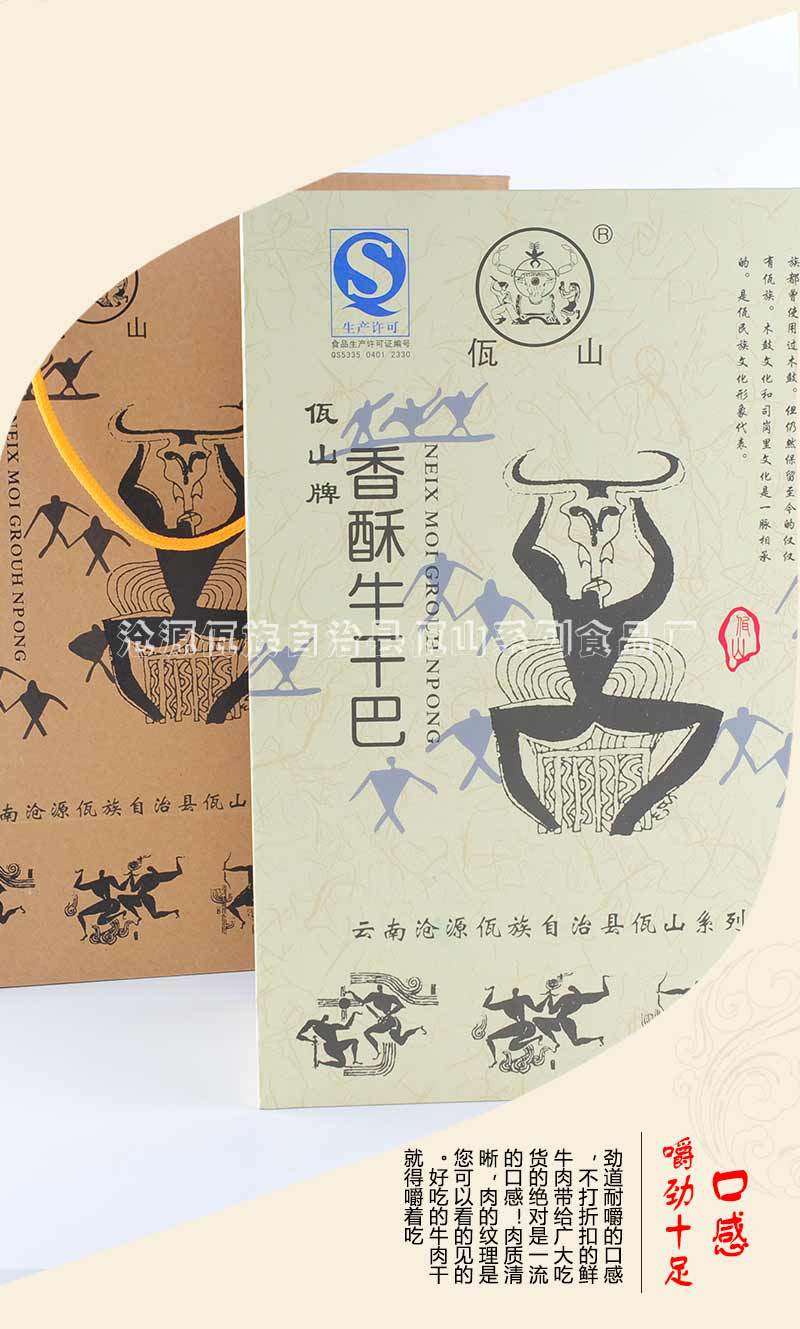 生产许可
食品生产许可证编号
QS5335 0401 2330
®
佤 山
佤山牌
香酥牛干巴
NEIX MOI GROUH NPONG
族都曾使用过木鼓。但仍然保留至今的仅仅
有佤族。木鼓文化和司岗里文化是一脉相承
的。是佤民族文化形象代表。
佤山
云南沧源佤族自治县佤山系列
山
NEIX MOI GROUH NPONG
南沧源佤族自治县佤山
沧源佤族自治县佤山系列食品厂
口感
嚼劲十足
劲道耐嚼的口感
，不打折扣的鲜
牛肉带给广大吃
货的绝对是一流
的口感！肉质清
晰，肉的纹理是
您可以看的见的
。好吃的牛肉干
就得嚼着吃